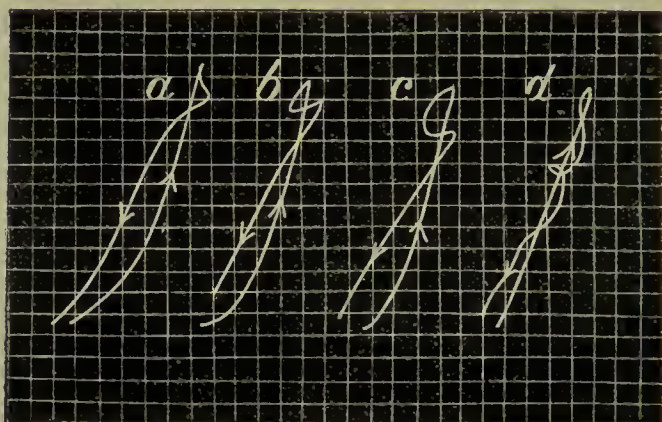 a b c d